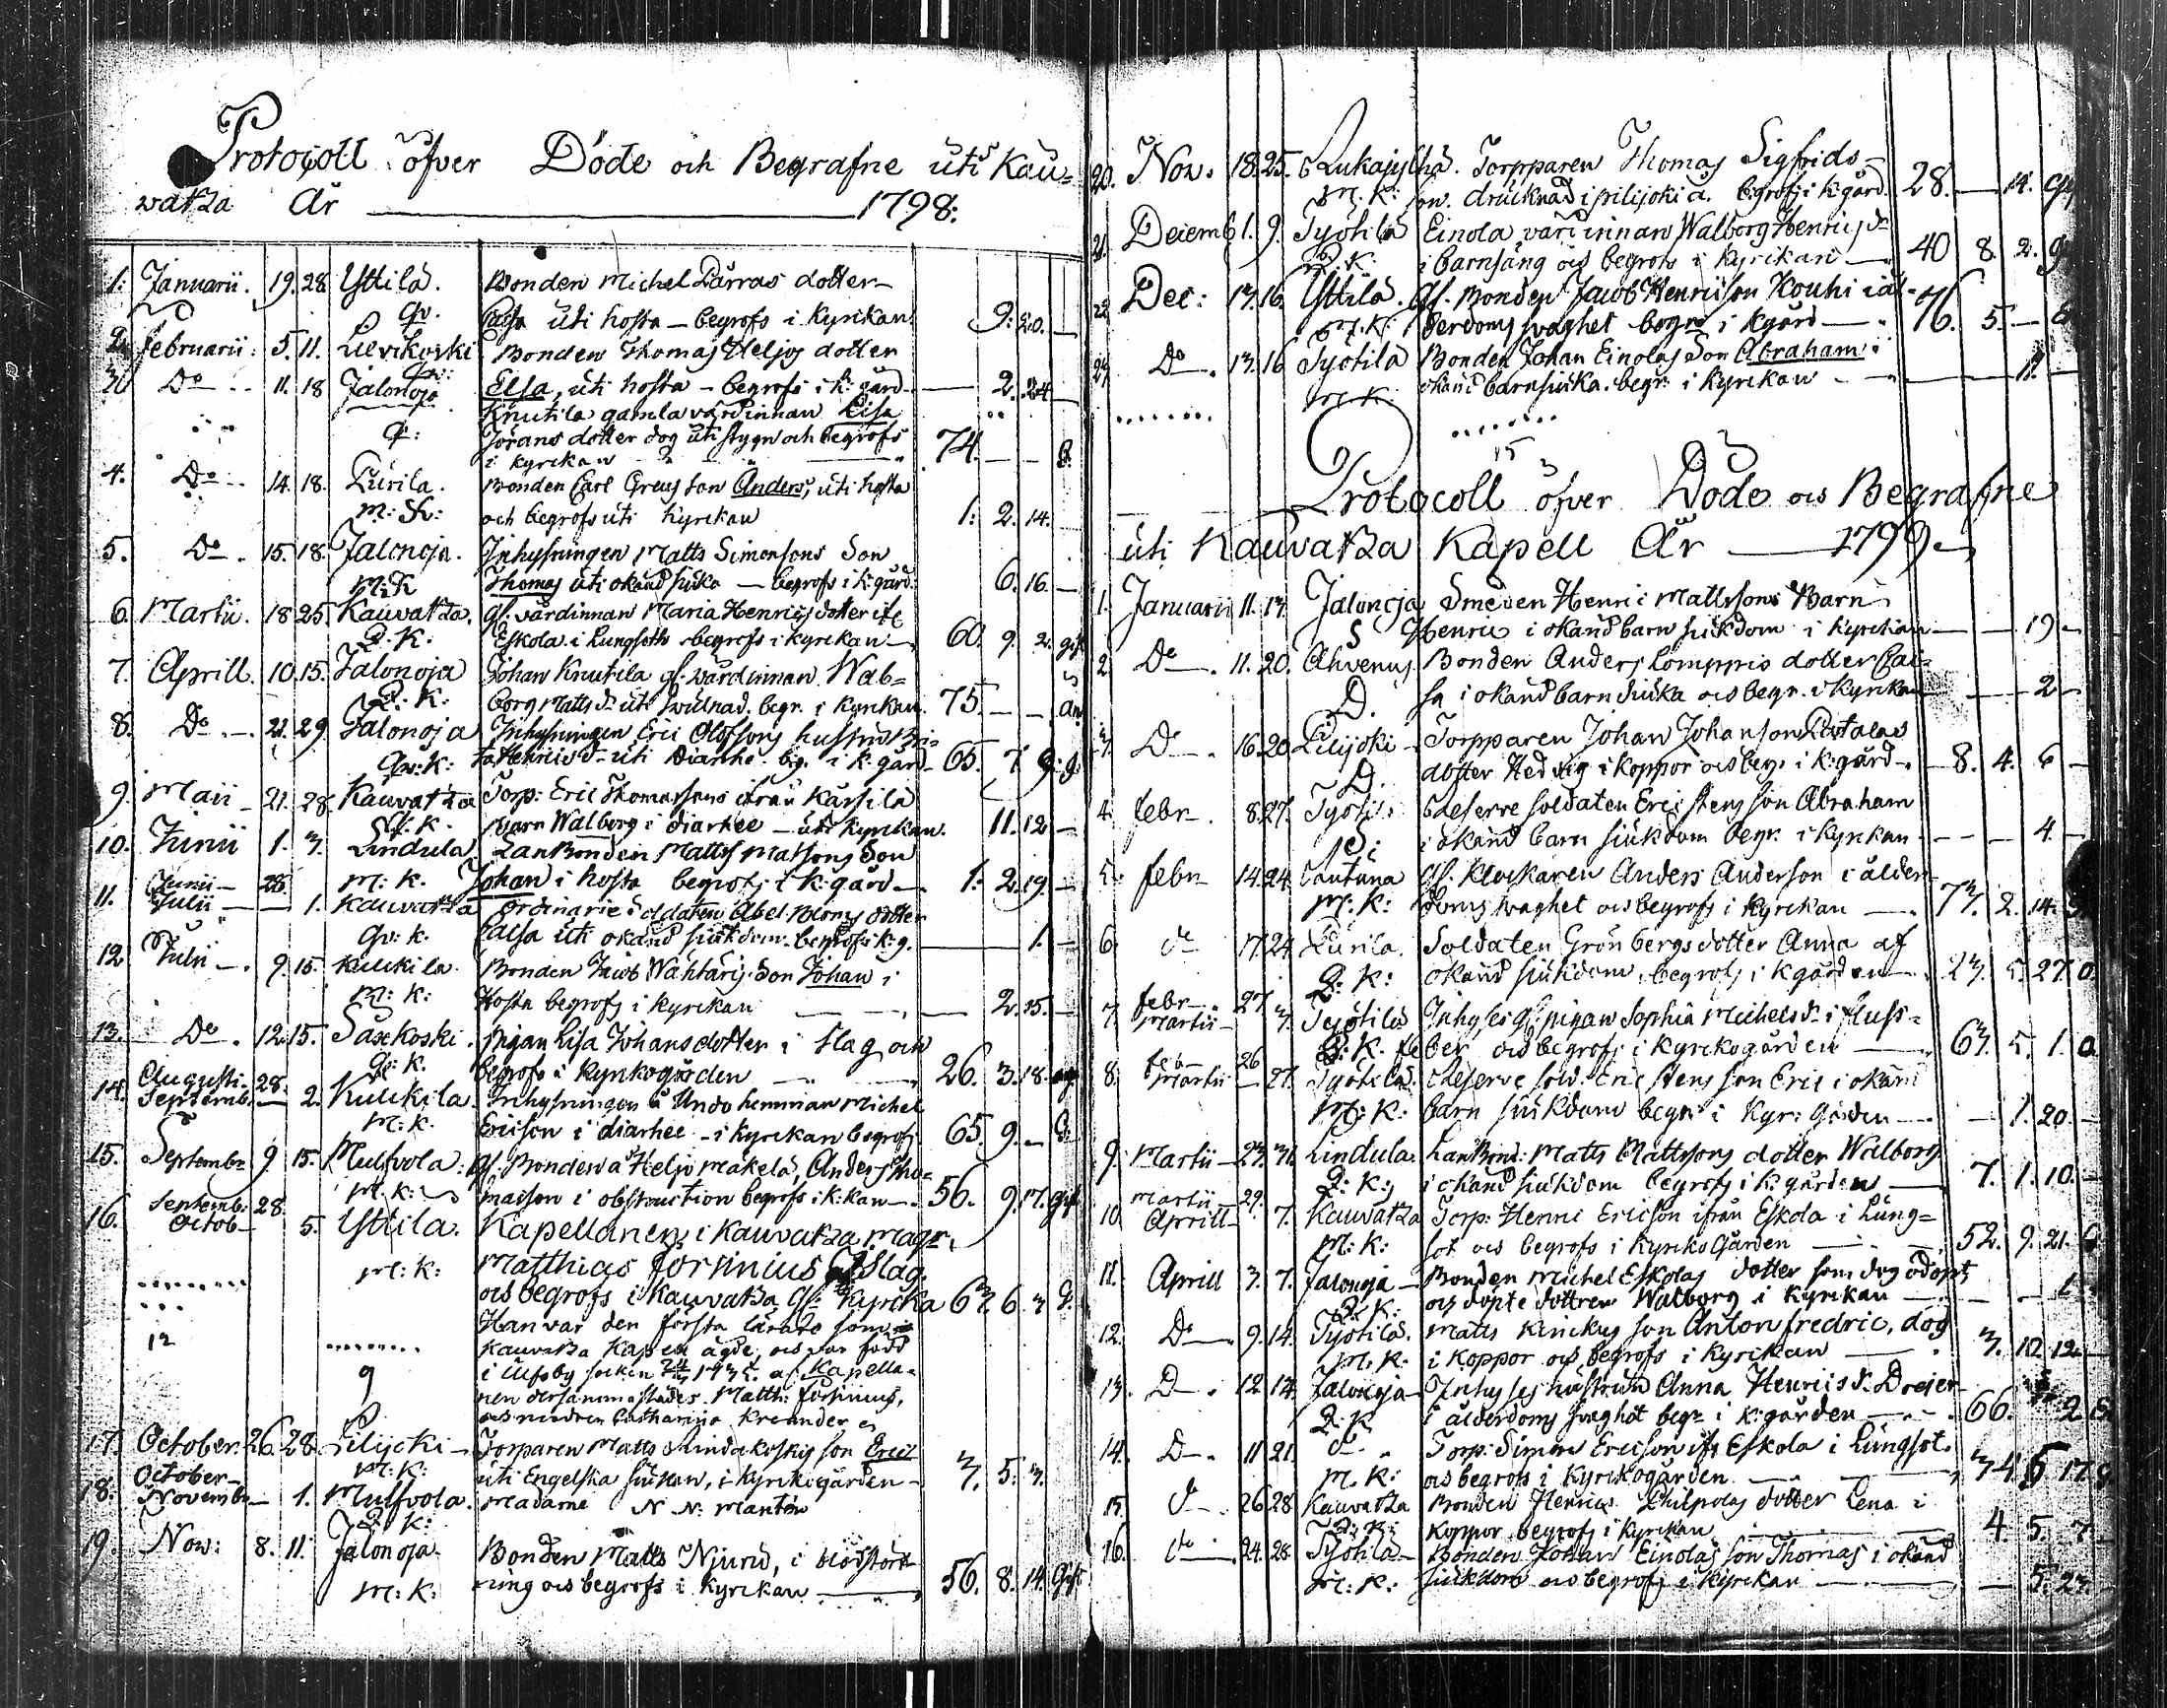 Protocoll öfver Döde och Begrafne uti Kau=
watza År 1798:
1: Januarii. 19. 28. Yttilä. Bonden Michel Pärras dotter
Qv. Caisa uti hosta - begrofs i Kyrckan 9. 20. -
2. Februarii: 5. 11. Lievikoski Bonden Thomas Heljos dotter
Qv: Elsa, uti hosta - begrofs i k: gård 2. 24
3. Do 11. 18 Jalonoja Knutila gamla värdinnan Lisa
Q: Jörans dotter dog uti stygn och begrofs
i kyrckan 74. - - E.
4. Do 14. 18. Purila. Bonden Carl Greus son Anders, uti hosta
m: K: och begrofs uti Kyrckan 1: 2. 14.
5. Do. 15. 18. Jalonoja. Inhysningen Matts Simonsons Son
m: K Thomas uti okänd siuka - begrofs i k: gård. 6. 16. -
6. Martii. 18 25 Kauvatza. gl: värdinnan Maria Henrics dotter ifr
Q. K. Eskola i lungsoth begrofs i kyrckan 60. 9. 2. gift
7. Aprill. 10. 15. Jalonoja Johan Knutila gl. wärdinnan Wal=
Q. K: borg Matts dr uti swullnad. begr. i Kyrckan. 75. - -
8. Do. - 21. 29 Jalonoja Inhysningen Eric Olofsons hustru Bri=
Qv: K: ta Henricsdr uti Diarhe. bg. i k: gård 65. 7. 9. g.
9. Maii - 21. 28. Kauvatza Torp: Eric Thomassons ifrån Kärsilä
Q. k. barn Walborg i diarhee - uti kyrckan. 11. 12 -
10. Junii 1. 3. Lindula Lanbonden Matts Matsons Son
m: k. Johan i hosta begrofs i k: gård 1: 2. 19. -
11. Junii - 28.
Julii - 1. Kauvatza ordinarie Soldaten Abel Bloms dotter
Qv: k. Caisa uti okänd siukdom. begrofs i k: g. 1. -
12 Julii -. 9. 15. Kuckila. Bonden Jacob Wähtäris Son Johan i
m: k: Hosta begrofs i kyrckan 2. 15. -
13. Do. 12. 15. Säxkoski. Pigan Lisa Johans dotter i Slag och
Q: K. begrofs i Kyrkogården 26. 3. 18. og
14. Augusti. 28.
Septemb. - 2. Kuckila. Inhysningen å Undo hemman Michel
m: k. Ericson i diarhee - i kyrckan begrofs 65. 9. - G.
15. Septembr 9 15. Mulfvola: gl. Bonden å Heljo Mäkelä, Anders Tho=
m: k: masson i obstruction begrofs i k: kan 56. 9. 17. gift
16. Septemb. 28.
Octob - 5. Yttilä. Kapellanen i Kauvatza Magr.
m: k: Matthias Forsinius i Slag.
och begrofs i Kauvatza gl: Kyrcka 63. 6. 3 G.
Han var den första lärare som
12 Kauvatza Kapell ägde, och var född
i Ulfsby socken 1735. af Kapella-
9 nen dersammastädes Matth: Forsinius,
och modren Catharina Kreander
17. October. 26. 28. Pilijoki - Torparen Matts Rindakoskis son Eric
m: k: uti Engelska siukan, i Kyrckogården 3. 5. 3.
18. October -
November - 1. Mulfvola. Madame N N: Mantén
Q K:
19. Nov: 8. 11. Jalonoja. Bonden Matts Njurö, i blodstört-
m: k: ning och begrofs i Kyrckan 56. 8. 14. Gift
20. Nov. 18. 25. Lukajylhä. Torpparen Thomas Sigfrids-
m. K: son. drucknad i pilijoki å. begrofs i k: gård 28. - 14. gif
21. Decemb 1. 9. Työtilä Einola värdinnan Walborg Henrics dr
Q: K. i barnsäng och begrofs i kyrckan 40 8. 2. g
22 Dec: 13. 16. Yttilä. Gl. Bonden Jacob Henricson Kouhi i ål-
m: K. derdoms svaghet begr i kgård 76. 5. - E
23 Do. 13. 16 Työtilä Bonden Johan Einolas Son Abraham i
m: K. okänd barnsiuka. begr: i kyrckan 11. -
15
Protocoll öfver Döde och Begrafne
uti Kauvatza Kapell År 1799.
1. Januarii 11. 13. Jalonoja Smeden Henric Mattssons Barn
S Henric i okänd barn siukdom i kyrckan 19 -
2. Do. 11. 20. Ahvenus Bonden Anders Lomppis dotter Cai=
D. sa i okänd barn siuka och begr. i Kyrckan 2 -
3. D. 16. 20 Pilijoki - Torpparen Johan Johanson Ratalas
D. dotter Hedvig i koppor och begr. i k: gård 8. 4. 6 -
4. febr. 8. 27. Työtil: Reserve soldaten Eric Stens son Abraham
S: i okänd barn siukdom begr. i kyrckan 4. -
5. febr 14. 24. Gl. Klockaren Anders Anderson i ålder-
m: K: doms svaghet och begrofs i kyrckan 73. 2. 14.
6. do 17. 24. Purila. Soldaten Grönbergs dotter Anna af
Q: K: okänd siukdom, begrofs i kgården 23. 5. 27. O.
7. febr. 27.
Martii - 3. Työtilä Inhyses gl. pigan Sophia Michels dr i fluss=
Q: K. feber och begrofs i kyrckogården 63. 5. 1. O
8. febr 26
Martii - 27. Työtilä. Reserve sold: Eric Stens son Eric i okänd
m: K: barn siukdom begr. i Kyr: Gården 1. 20. -
9. Martii - 23. 31. Lindula. Lanbond: Matts Mattssons dotter Walborg
Q: K: i okänd siukdom begrofs i k: gården 7. 1. 10. -
10. Martii - 29.
Aprill - 7. Kauvatza Torp: Henric Ericson ifrån Eskola i Lung=
m: K: sot och begrofs i kyrcko Gården 52. 9. 21. G
11. Aprill 3. 7. Jalonoja - Bonden Michel Eskolas dotter som dog odöpt,
Q K: och döpte dottren Walborg i kyrckan
12. Do 9. 14. Työtilä. Matts Kinckus son Anton Fredric, dog
m. K. i koppor och begrofs i kyrckan 3. 12 12. -
13. D. 12 14 Jalonoja - Inhyses hustrun Anna Henrics dr Dreier
Q: K i ålderdoms svaghet begr i k: gården 66. 2
14. D. 11 21. d. Torp: Simon Ericson ifr Eskola i Lungsot.
m. K: och begrofs i kyrckogården 34 5 17
15. d. 26 28 Kauvatza Bonden Henrics Philpolas dotter Lena i
Q: K: koppor begrofs i kyrckan 4. 5. 7. -
16. do. 24. 28. Työtilä - Bonden Johan Einolas son Thomas i okänd
m: K: siukdom och begrofs i kyrckan - 5. 23.